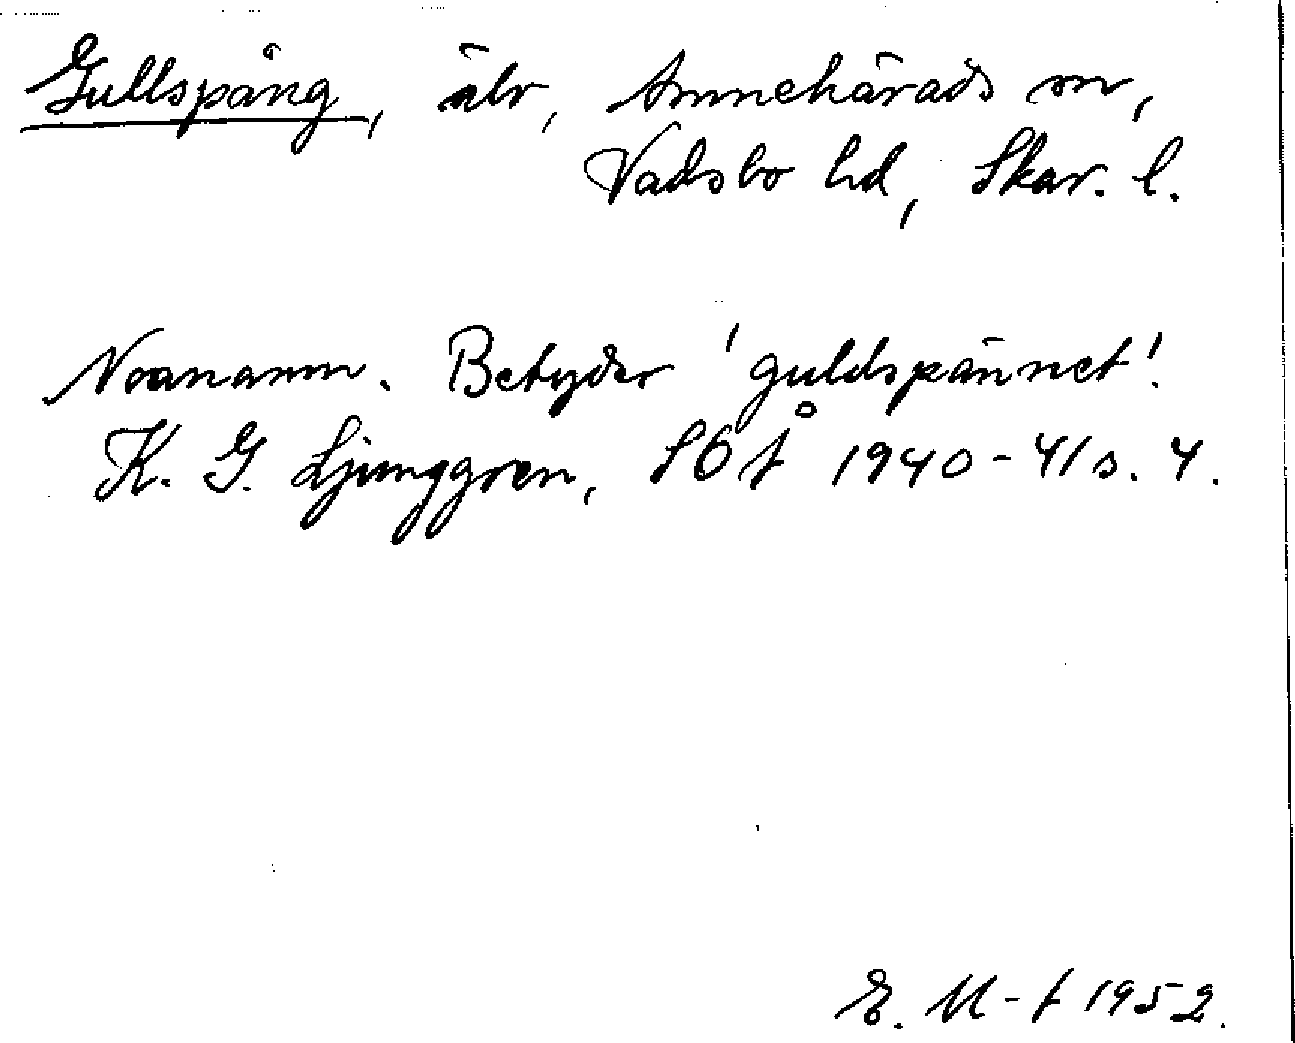 Gullspång, älv, Amnehärads sn,
Vadsbo hd, Skar. l.
Noanamn. Betyder 'guldspännet'.
K. G. Ljunggren, SOÅ 1940-41 s. 4.
E. M-f 1952.